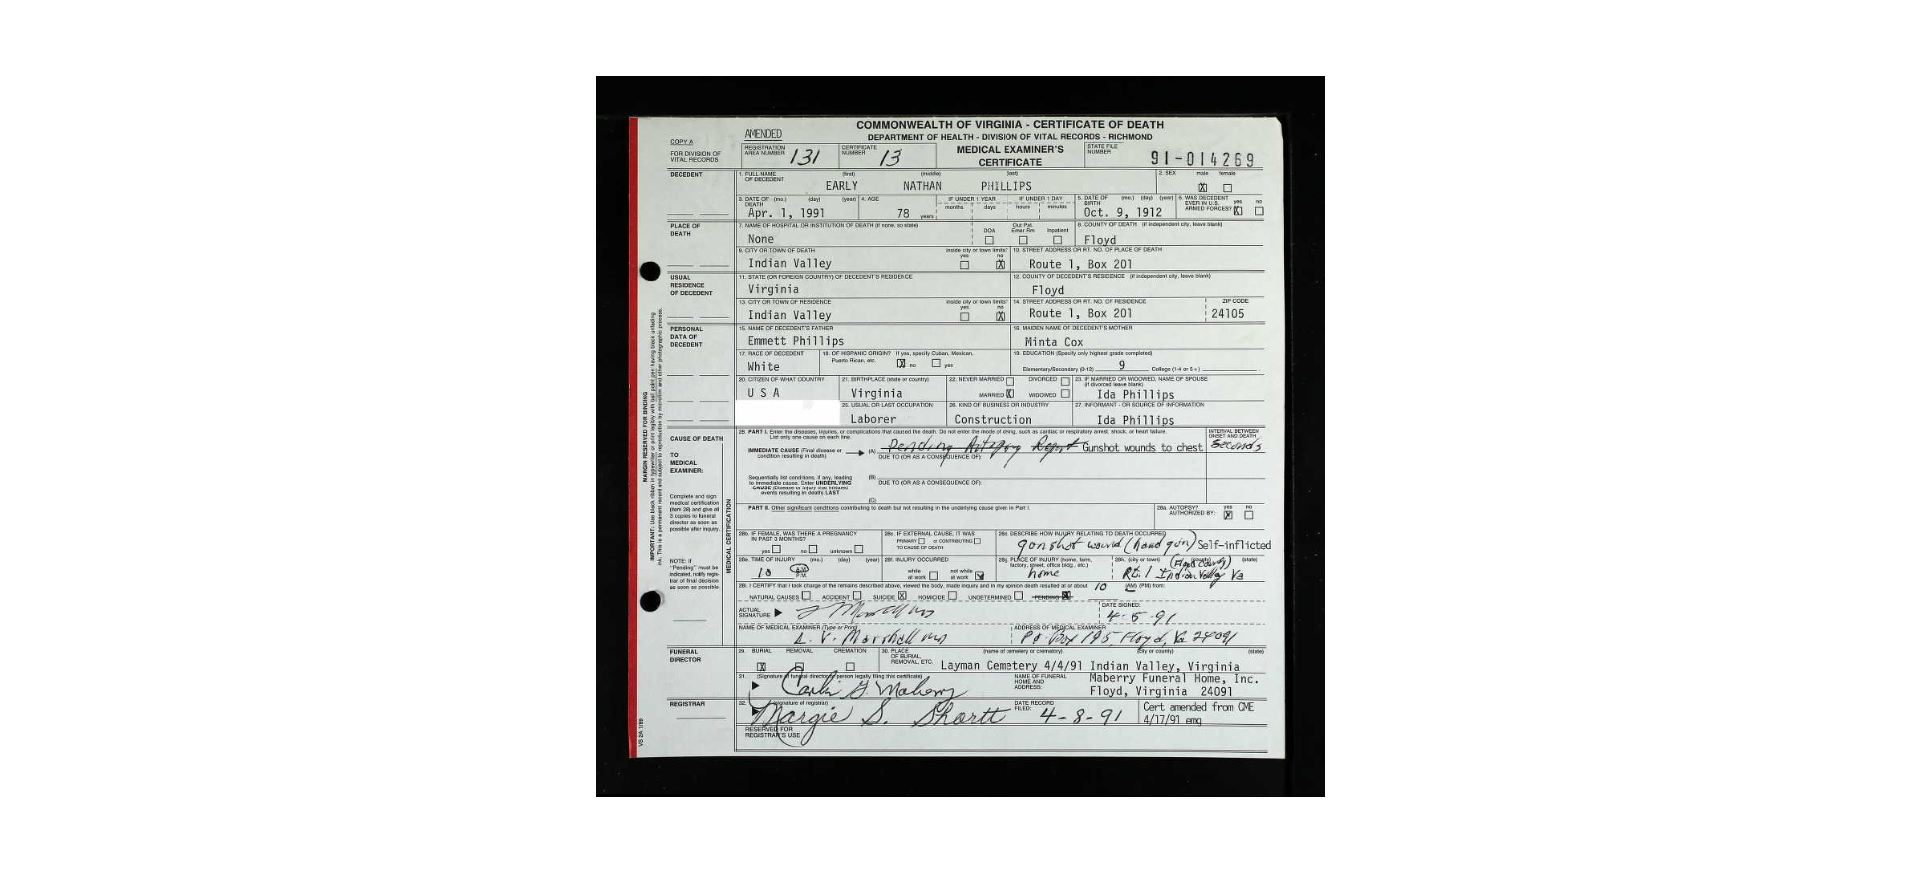 COMMONWEALTH OF VIRGINIA - CERTIFICATE OF DEATH
DEPARTMENT OF HEALTH - DIVISION OF VITAL RECORDS - RICHMOND
AMENDED
COPY A
FOR DIVISION OF VITAL RECORDS
REGISTRATION AREA NUMBER 131
CERTIFICATE NUMBER 13
MEDICAL EXAMINER'S CERTIFICATE
STATE FILE NUMBER 91-014269
DECEDENT
1. FULL NAME OF DECEDENT (first) (middle) (last)
EARLY NATHAN PHILLIPS
2. SEX male female
X
3. DATE OF DEATH (mo.) (day) (year)
Apr. 1, 1991
4. AGE 78 years
IF UNDER 1 YEAR months days
IF UNDER 1 DAY hours minutes
5. DATE OF BIRTH (mo.) (day) (year)
Oct. 9, 1912
6. WAS DECEDENT EVER IN U.S. ARMED FORCES? yes no
X
PLACE OF DEATH
7. NAME OF HOSPITAL OR INSTITUTION OF DEATH (if none, so state)
None
DOA Out Pat. Emer Rm Inpatient
8. COUNTY OF DEATH (if independent city, leave blank)
Floyd
9. CITY OR TOWN OF DEATH
Indian Valley
inside city or town limits? yes no
X
10. STREET ADDRESS OR RT. NO. OF PLACE OF DEATH
Route 1, Box 201
USUAL RESIDENCE OF DECEDENT
11. STATE (OR FOREIGN COUNTRY) OF DECEDENT'S RESIDENCE
Virginia
12. COUNTY OF DECEDENT'S RESIDENCE (if independent city, leave blank)
Floyd
13. CITY OR TOWN OF RESIDENCE
Indian Valley
inside city or town limits? yes no
X
14. STREET ADDRESS OR RT. NO. OF RESIDENCE
Route 1, Box 201
ZIP CODE
24105
PERSONAL DATA OF DECEDENT
15. NAME OF DECEDENT'S FATHER
Emmett Phillips
16. MAIDEN NAME OF DECEDENT'S MOTHER
Minta Cox
17. RACE OF DECEDENT
White
18. OF HISPANIC ORIGIN? If yes, specify Cuban, Mexican, Puerto Rican, etc.
X no yes
19. EDUCATION (Specify only highest grade completed)
Elementary/Secondary (0-12) 9 College (1-4 or 5+)
20. CITIZEN OF WHAT COUNTRY
U S A
21. BIRTHPLACE (state or country)
Virginia
22. NEVER MARRIED DIVORCED
MARRIED X WIDOWED
23. IF MARRIED OR WIDOWED, NAME OF SPOUSE (if divorced leave blank)
Ida Phillips
25. USUAL OR LAST OCCUPATION
Laborer
26. KIND OF BUSINESS OR INDUSTRY
Construction
27. INFORMANT - OR SOURCE OF INFORMATION
Ida Phillips
CAUSE OF DEATH
TO MEDICAL EXAMINER:
Complete and sign medical certification (item 28) and give all 3 copies to funeral director as soon as possible after inquiry.
NOTE: If "Pending" must be indicated, notify registrar of final decision as soon as possible.
MEDICAL CERTIFICATION
28. PART I. Enter the diseases, injuries, or complications that caused the death. Do not enter the mode of dying, such as cardiac or respiratory arrest, shock, or heart failure. List only one cause on each line.
INTERVAL BETWEEN ONSET AND DEATH
IMMEDIATE CAUSE (Final disease or condition resulting in death)
(A) Pending Autopsy Report Gunshot wounds to chest
Seconds
DUE TO (OR AS A CONSEQUENCE OF):
Sequentially list conditions, if any, leading to immediate cause. Enter UNDERLYING CAUSE (Disease or injury that initiated events resulting in death) LAST
(B)
DUE TO (OR AS A CONSEQUENCE OF):
(C)
PART II. Other significant conditions contributing to death but not resulting in the underlying cause given in Part I.
28a. AUTOPSY? AUTHORIZED BY: yes no
X
28b. IF FEMALE, WAS THERE A PREGNANCY IN PAST 3 MONTHS?
yes no unknown
28c. IF EXTERNAL CAUSE, IT WAS PRIMARY or CONTRIBUTING TO CAUSE OF DEATH
28d. DESCRIBE HOW INJURY RELATING TO DEATH OCCURRED
gunshot wound (hand gun) Self-inflicted
28e. TIME OF INJURY (mo.) (day) (year)
10 A.M. P.M.
28f. INJURY OCCURRED
while at work not while at work
28g. PLACE OF INJURY (home, farm, factory, street, office bldg., etc.)
home
28h. (city or town) (county) (state)
Rt. 1 Indian Valley (Floyd County) Va
28i. I CERTIFY that I took charge of the remains described above, viewed the body, made inquiry and in my opinion death resulted at or about 10 (AM) (PM) from:
NATURAL CAUSES ACCIDENT SUICIDE X HOMICIDE UNDETERMINED PENDING
ACTUAL SIGNATURE
DATE SIGNED:
4-5-91
NAME OF MEDICAL EXAMINER (Type or Print)
Marshall MD
ADDRESS OF MEDICAL EXAMINER
PO Box 195, Floyd, Va 24091
FUNERAL DIRECTOR
29. BURIAL REMOVAL CREMATION
X
30. PLACE OF BURIAL, REMOVAL, ETC. (name of cemetery or crematory) (city or county) (state)
Layman Cemetery 4/4/91 Indian Valley, Virginia
31. (Signature of funeral director or person legally filing this certificate)
NAME OF FUNERAL HOME AND ADDRESS:
Maberry Funeral Home, Inc.
Floyd, Virginia 24091
REGISTRAR
32. (signature of registrar)
Margie S. Shortt
DATE RECORD FILED: 4-8-91
Cert amended from CME
4/17/91 emg
RESERVED FOR REGISTRAR'S USE
MARGIN RESERVED FOR BINDING
VS 2A 1/89